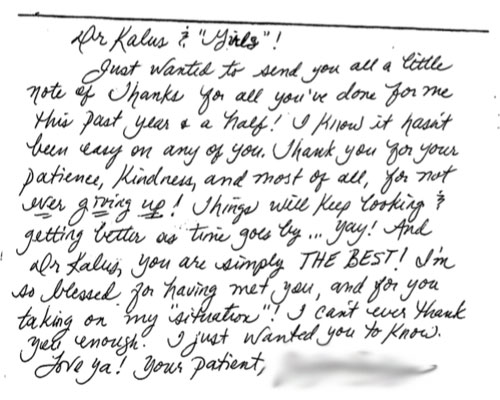 Dr Kalus & "Girls"!
Just wanted to send you all a little
note of Thanks for all you've done for me
this past year & a half! I know it hasn't
been easy on any of you. Thank you for your
patience, kindness, and most of all, for not
ever giving up! Things will keep looking &
getting better as time goes by... yay! And
Dr Kalus, you are simply THE BEST! I'm
so blessed for having met you, and for you
taking on my "situation"! I can't ever thank
you enough. I just wanted you to know.
Love ya! Your patient,